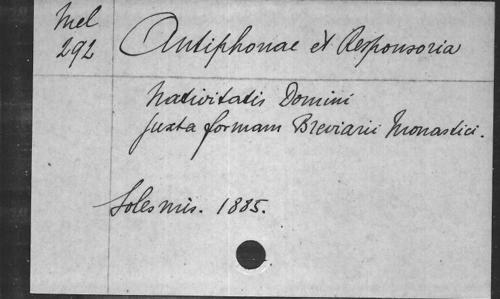 Mel
292
Antiphonae et Responsoria
Nativitatis Domini
juxta formam Breviarii Monastici.
Solesmis. 1885.